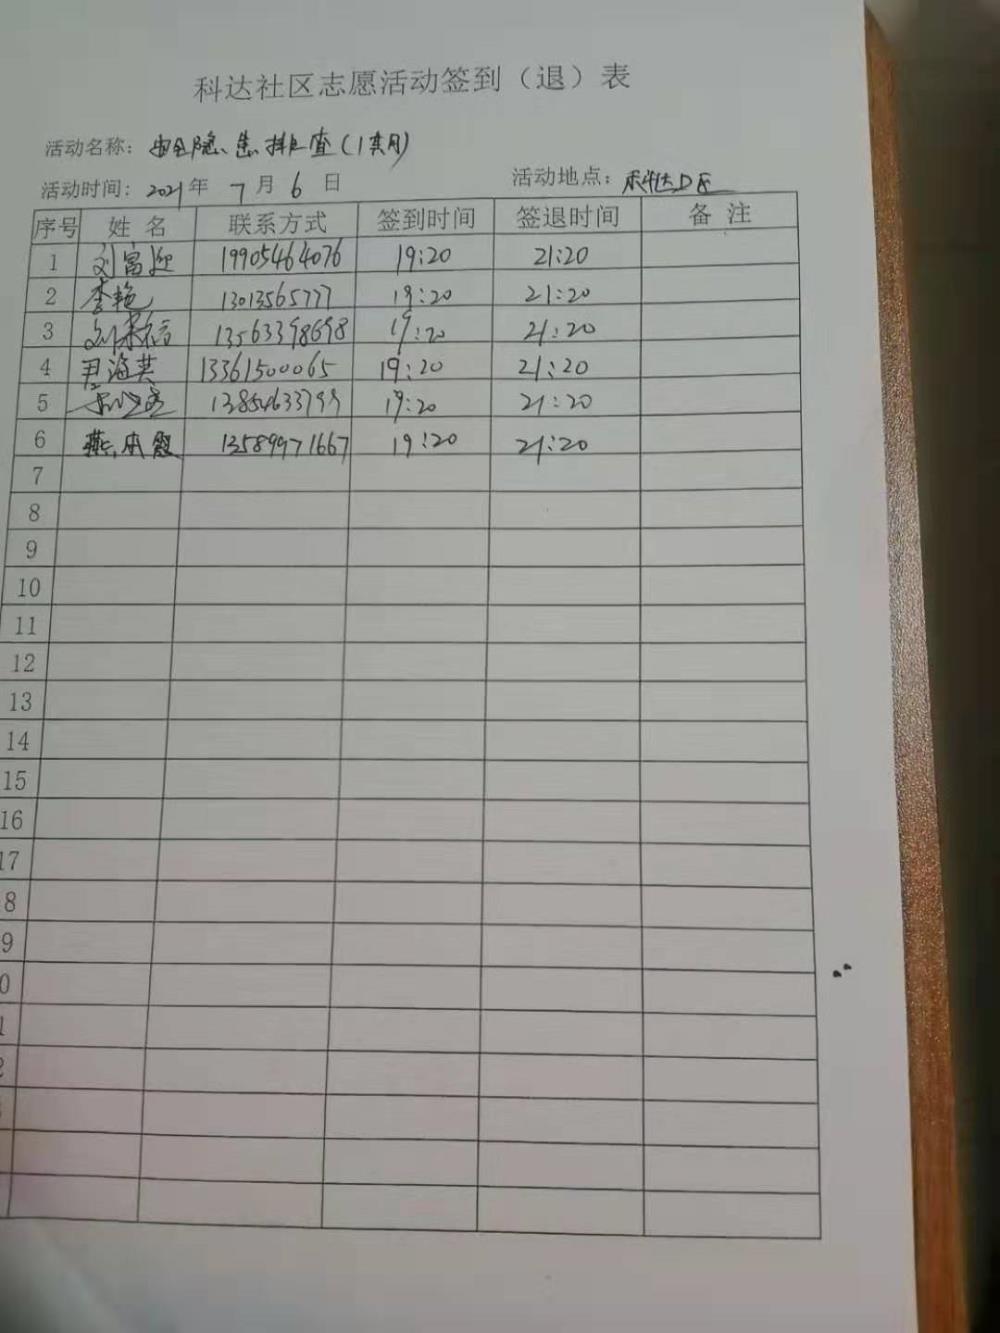 科达社区志愿活动签到（退）表
活动名称：安全隐患排查(1类用)
活动时间：2021年 7月6日 活动地点：科达D区
序号 姓名 联系方式 签到时间 签退时间 备注
1 刘富迎 19905464076 19:20 21:20
2 李艳 13013565777 19:20 21:20
3 刘 13563398698 19:20 21:20
4 尹海英 13361500065 19:20 21:20
5 13854633799 19:20 21:20
6 燕本霞 13589971667 19:20 21:20
7
8
9
10
11
12
13
14
15
16
17
8
9
0
1
2